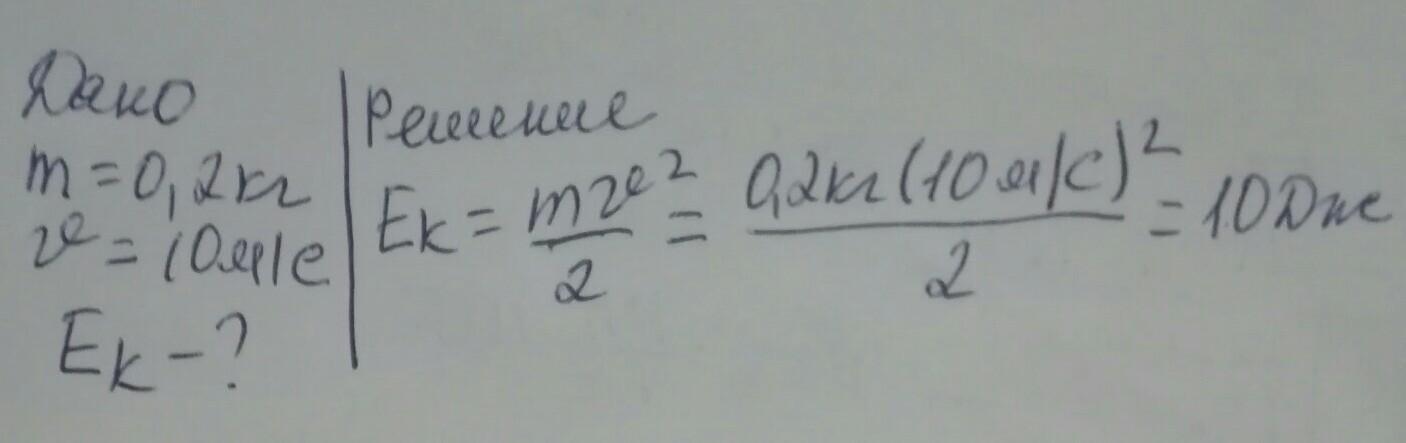 Дано
m = 0,2 кг
v = 10 м/с
Eк - ?
Решение
Eк = mv²/2 = 0,2кг(10 м/с)²/2 = 10 Дж